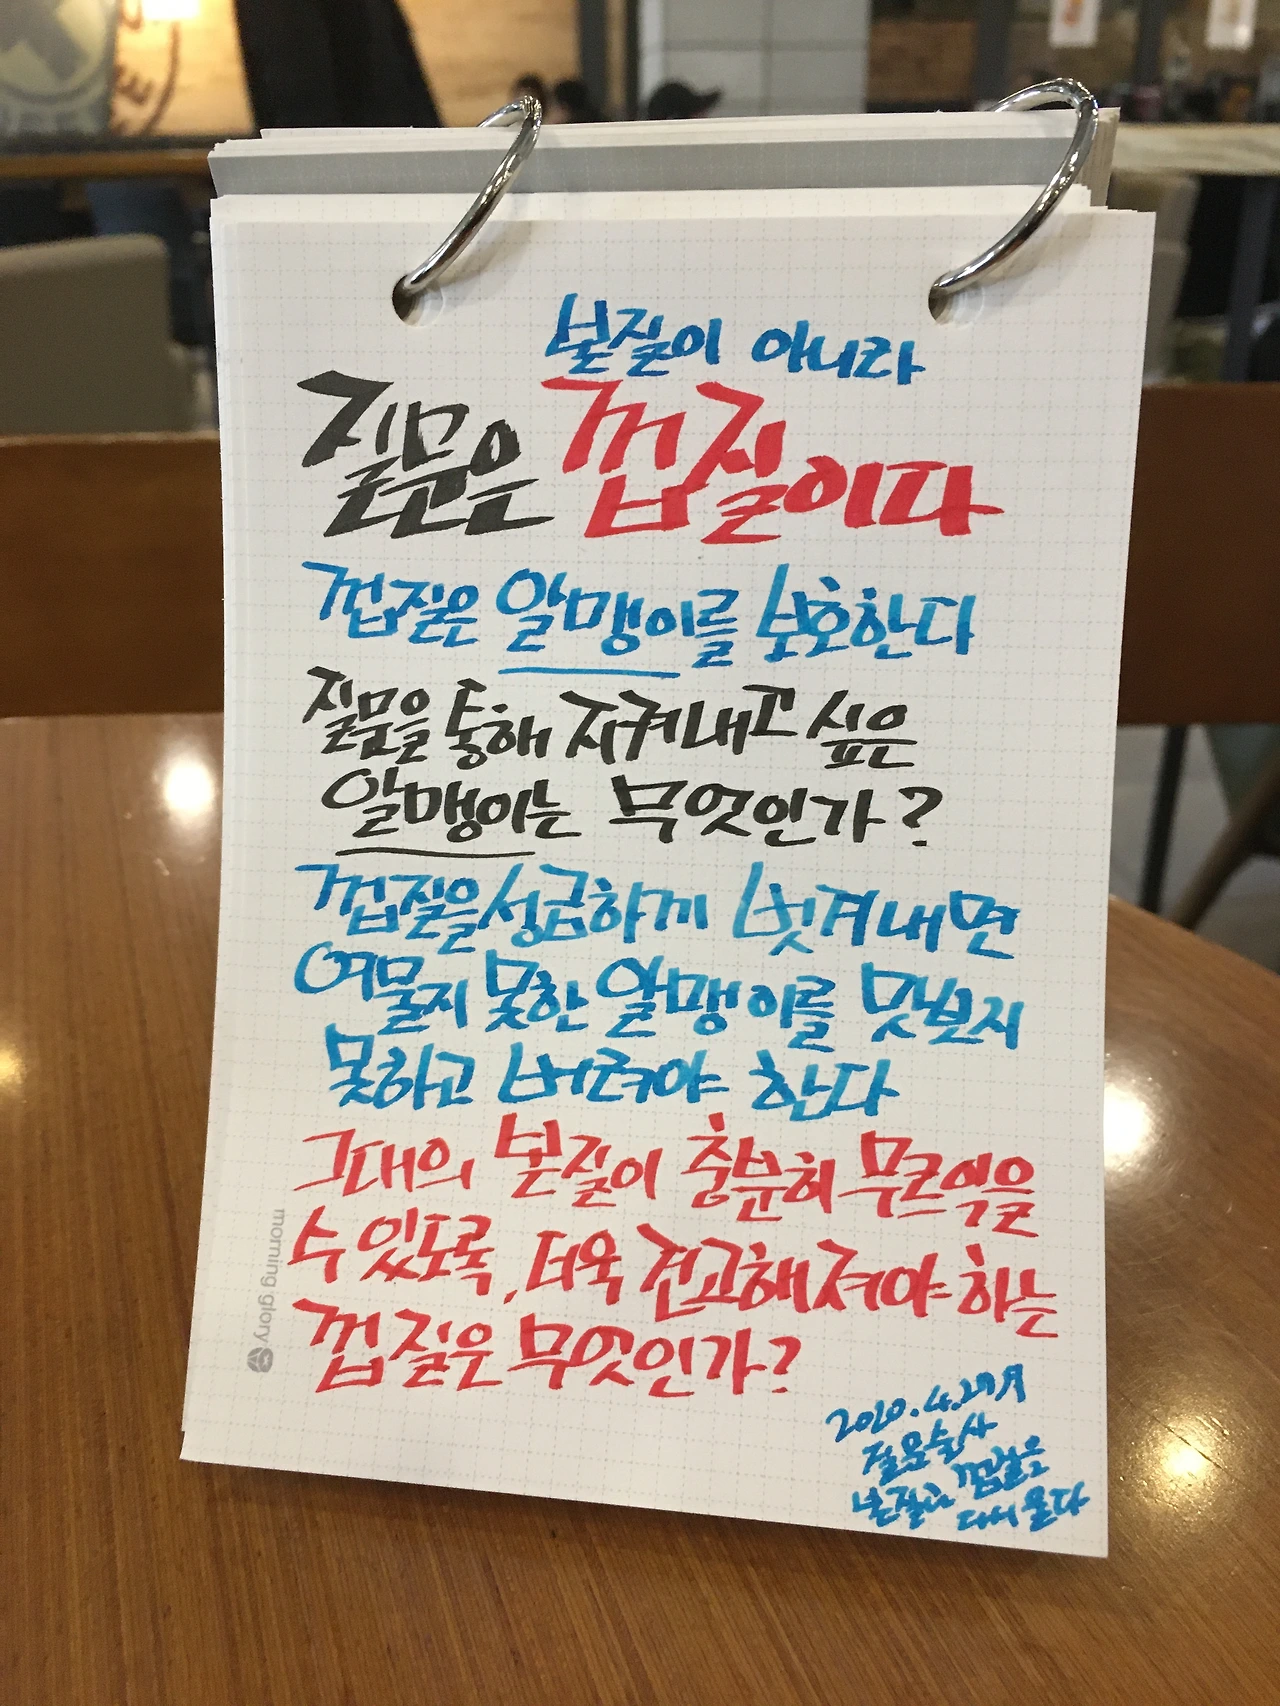 본질이 아니라
질문은 껍질이다
껍질은 알맹이를 보호한다
질문을 통해 지켜내고 싶은
알맹이는 무엇인가?
껍질을 성급하게 벗겨내면
여물지 못한 알맹이를 맛보지
못하고 버려야 한다
그대의 본질이 충분히 무르익을
수 있도록, 더욱 견고해져야 하는
껍질은 무엇인가?
morning glory
2020.4.29月
질문술사
본질과 껍질은
다시 묻다